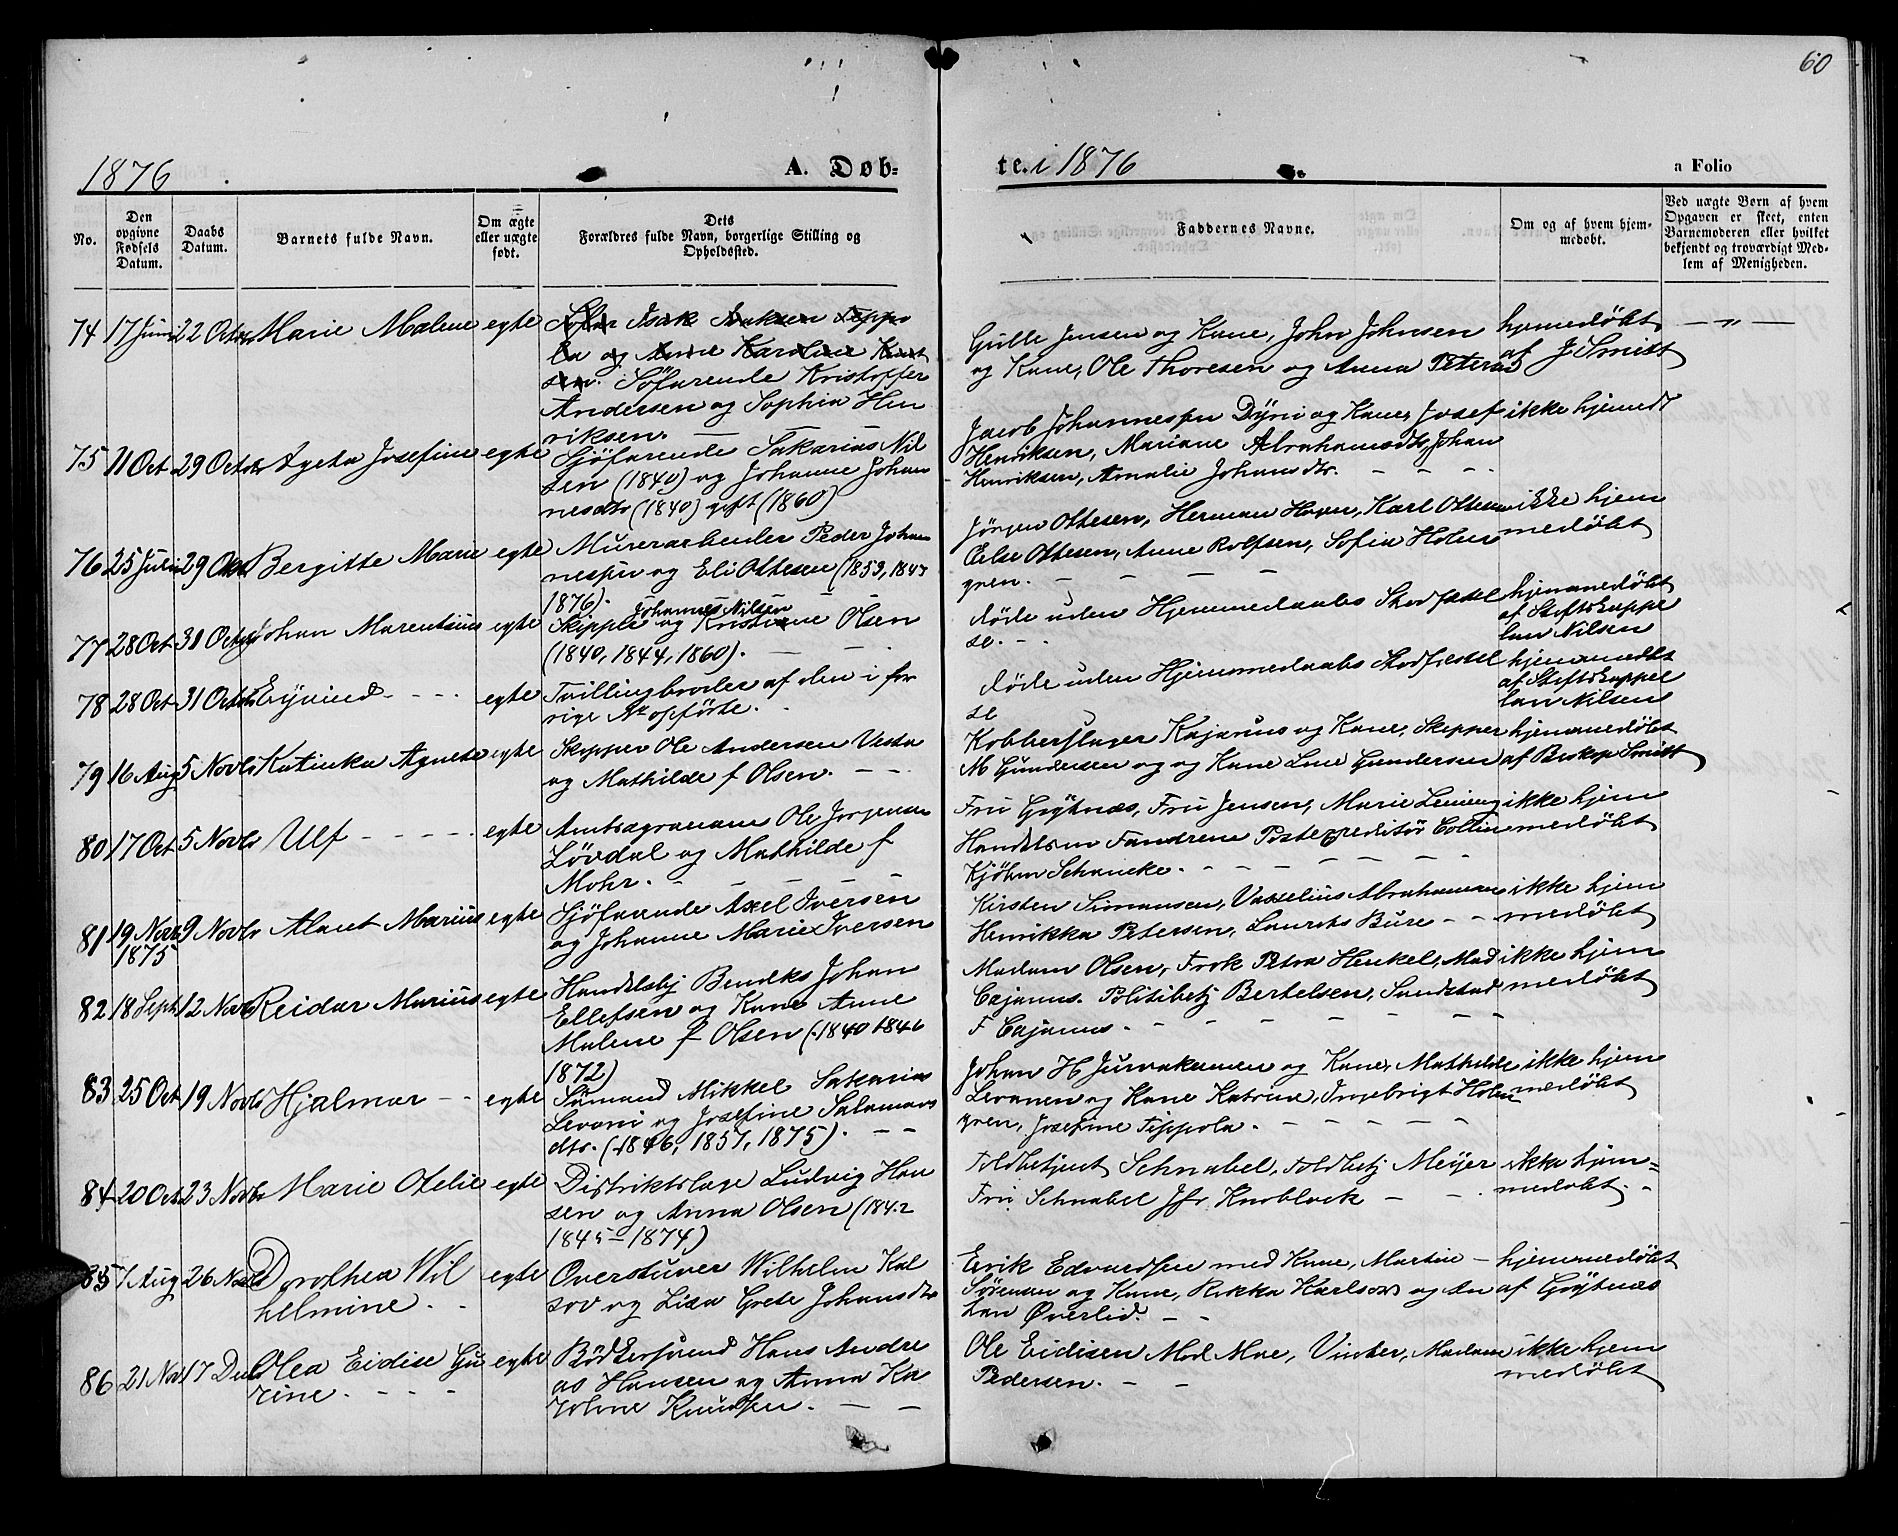 60
1876
A. Døb-
te. i 1876
a Folio
No.
Den opgivne Fødsels Datum.
Daabs Datum.
Barnets fulde Navn.
Om ægte eller uægte født.
Dets Forældres fulde Navn, borgerlige Stilling og Opholdssted.
Faddernes Navne.
Om og af hvem hjemmedøbt.
Ved uægte Børn af hvem Opgaven er skeet, enten Barnemoderen eller hvilket bekjendt og troværdigt Medlem af Menigheden.
74 17 Juni 22 Octbr Marie Malene egte
Isak Isaksen Tippo
la og Anne Karoline Knut
sen. Söfarende Kristoffer
Andersen og Sophia Hen
riksen.
Gulle Jensen og Kone, John Johnsen
og Kone, Ole Thoresen og Anna Peters
hjemedöbt
af J Smitt
— " —
75 11 Oct 29 Octbr Ageta Josefine egte
Sjöfarende Sakarias Nil
sen (1840) og Johanne Johan
nesdtr (1840) gift (1860)
Jacob Johannesen Dyni og Kone, Josef
Henriksen, Mariane Abrahamsdtr, Johan
Henriksen, Amalie Johansdtr. - - -
ikke hjemedt
76 25 Juli 29 Oct Bergitte Marie egte
Murerarbeider Peder Johan
nesen og Eli Ottesen (1853, 1843
1876).
Jörgen Ottesen, Herman Hagen, Karl Ottesen
Else Ottesen, Anne Rolfsen, Sofia Holm
gren. - - - -
ikke hjem
medöbt
77 28 Oct 31 Octbr Johan Marentius egte
Johannes Nilsen
Skipper og Kristine Olsen
(1840, 1844, 1860). - -
döde uden Hjemmedaabs Stadfæstel
se. - -
hjemmedöbt
af Stiftskappe
lan Nilsen
78 28 Oct 31 Octbr Eyvind - - - egte
Tvillingbroder af den i for
rige No opförte. -
döde uden Hjemmedaabs Stadfæstel
se
hjemmedöbt
af Stiftskappel
lan Nilsen
79 16 Aug 5 Novbr Katinka Agnete egte
Skipper Ole Andersen Vesta
og Mathilde f Olsen. - -
Kobberslager Kajanus og Kone, Skipper
M Gundersen og og Kone Line Gundersen
hjemmedöbt
af Biskop Smitt
80 17 Oct 5 Novbr Ulf - - - - - egte
Ole Jörgensen
Lövdal og Mathilde f
Mohr. -
Fru Grötnæs, Fru Jensen, Marie Lening
Handelsm Fandrem Postexpeditör Collin
Kjöbm Schancke. - - - - - -
ikke hjem
medöbt
81 19 Novbr 9 Novbr Alaut Marius egte
1875
Sjöfarende Axel Iversen
og Johanne Marie Iversen
Kirsten Simonsen, Vasselius Abrahamsen
Henrikka Petersen, Laurits Bure - -
ikke hjem
medöbt
82 18 Sept 12 Novbr Reidar Marius egte
Handelsbj Bendiks Johan
Ellefsen og Kone Anne
Malene f Olsen (1840 1846
1872)
Madam Olsen, Frök Petra Henkel, Mad
Cajanus. Politibetj Bertelsen, Sundstad
F Cajanus. - - - - - -
ikke hjem
medöbt
83 25 Oct 19 Novbr Hjalmar - - egte
Sömand Mikkel Sakarias
Levoni og Josefine Salamons
dtr. (1846, 1857, 1875). - -
Johan H Jurvakainen og Kone, Mathilde
Levonen og Kone Katrine, Ingebrigt Holm
gren, Josefine Tippola. - - - - -
ikke hjem
medöbt
84 20 Oct 23 Novbr Marie Ofelie egte
Distriktslæge Ludvig Han
sen og Anna Olsen (1842
1845 - 1874)
Toldbetjent Schnabel, Toldbetj Meyer
Fru Schnabel Jfr Knoblock - - -
ikke hjem=
medöbt. -
85 7 Aug 26 Novbr Dorothea Wil egte
helmine. -
Overstuver Wilhelm Kal
sov og Lisa Grete Johansdtr
Erik Edvardsen med Kone, Martin -
Sörensen og Kone, Rikka Karlsov og An
ton Överlid. - -
hjemmedöbt
af Gröytnæs
86 21 Nov 17 Decbr Olea Eidise Gu egte
rine. - - - -
Bödkersvend Hans Andre
as Hansen og Anna Ka
roline Knudsen. - -
Ole Eidisen Mod Moe, Vinter, Madam
Pedersen. - -
ikke hjem
medöbt